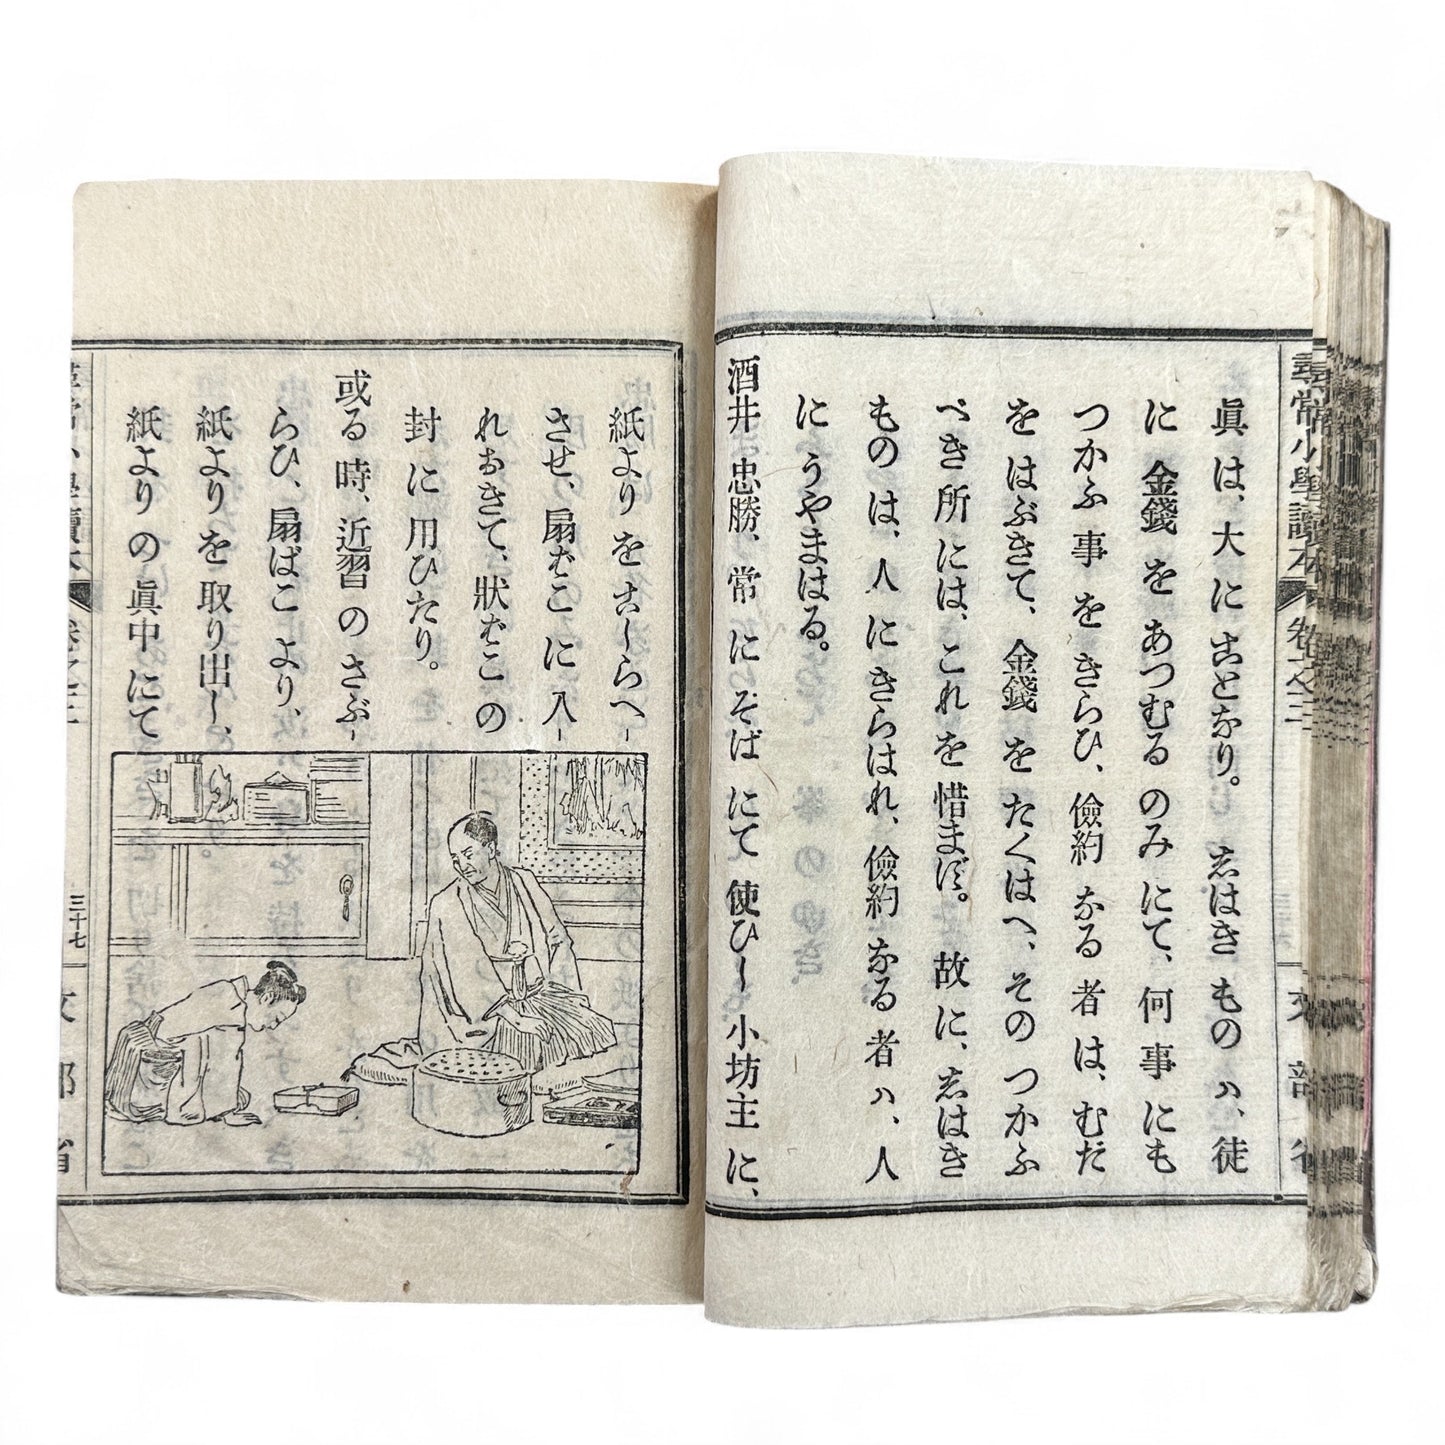 尋常小學讀本 卷之三
眞は、大にことなり。しはきものハ、徒
に金錢をあつむるのみにて、何事にも
つかふ事をきらひ、儉約なる者は、むだ
をはぶきて、金錢をたくはへ、そのつかふ
べき所には、これを惜まず。故に、しはき
ものは、人にきらはれ、儉約なる者ハ、人
にうやまはる。
酒井忠勝、常にそばにて使ひし小坊主に、
紙よりをこしらへ
させ、扇ばこに入
れおきて、狀ばこの
封に用ひたり。
或る時、近習のさぶ
らひ、扇ばこより、
紙よりを取り出し、
紙よりの眞中にて
尋常小學讀本
卷之三
三十七
文部省